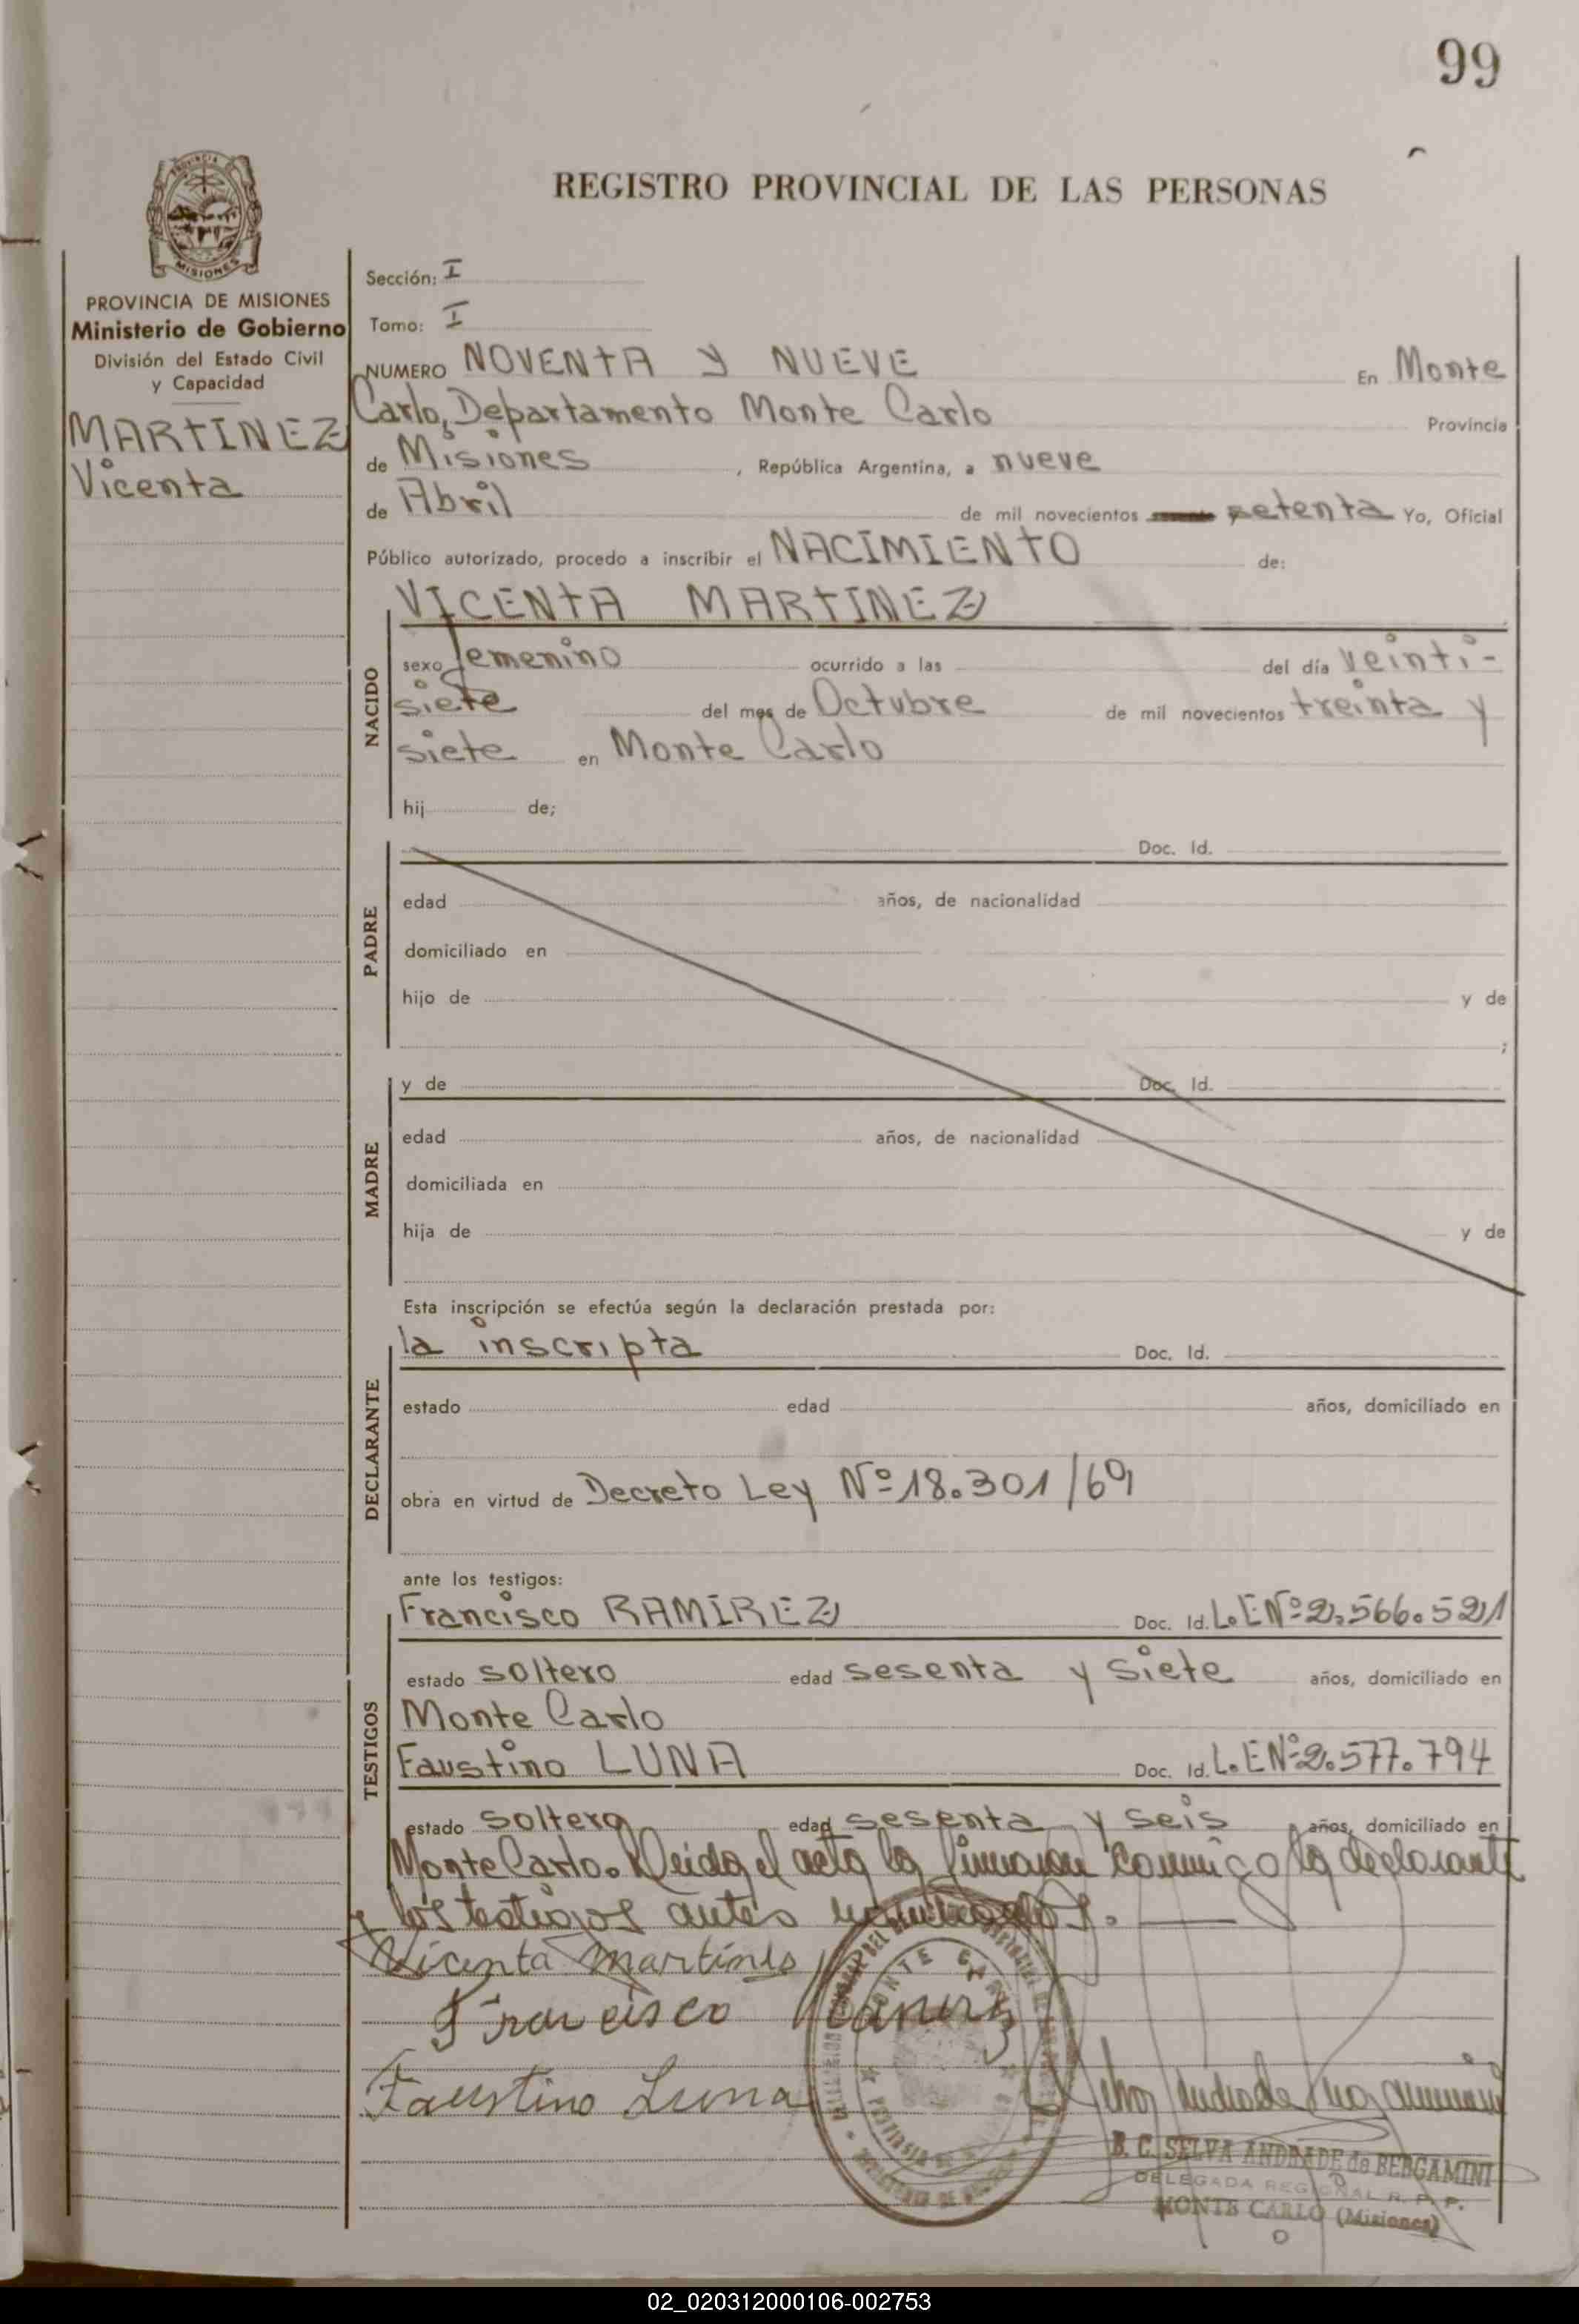 99
REGISTRO PROVINCIAL DE LAS PERSONAS
PROVINCIA
MISIONES
PROVINCIA DE MISIONES
Ministerio de Gobierno
División del Estado Civil
y Capacidad
MARTINEZ
Vicenta
Sección: I
Tomo: I
NUMERO NOVENTA Y NUEVE En Monte
Carlo, Departamento Monte Carlo Provincia
de Misiones, República Argentina, a nueve
de Abril de mil novecientos setenta Yo, Oficial
Público autorizado, procedo a inscribir el NACIMIENTO de:
VICENTA MARTINEZ
NACIDO
sexo femenino ocurrido a las del día veinti-
siete del mes de Octubre de mil novecientos treinta y
siete en Monte Carlo
hij de;
PADRE
Doc. Id.
edad años, de nacionalidad
domiciliado en
hijo de y de
;
MADRE
y de Doc. Id.
edad años, de nacionalidad
domiciliada en
hija de y de
Esta inscripción se efectúa según la declaración prestada por:
DECLARANTE
la inscripta Doc. Id.
estado edad años, domiciliado en
obra en virtud de Decreto Ley Nº 18.301/69
ante los testigos:
TESTIGOS
Francisco RAMIREZ Doc. Id. L.E Nº 2.566.521
estado soltero edad sesenta y siete años, domiciliado en
Monte Carlo
Faustino LUNA Doc. Id. L.E Nº 2.577.794
estado soltero edad sesenta y seis años, domiciliado en
Monte Carlo. Leida el acta la firmaron conmigo la declarante
y los testigos antes nombrados.
Vicenta Martines
Francisco Ramirez
Faustino Luna
MONTE CARLO
B. C. SELVA ANDRADE de BERGAMINI
DELEGADA REGIONAL R. P. P.
MONTE CARLO (Misiones)
02_020312000106-002753